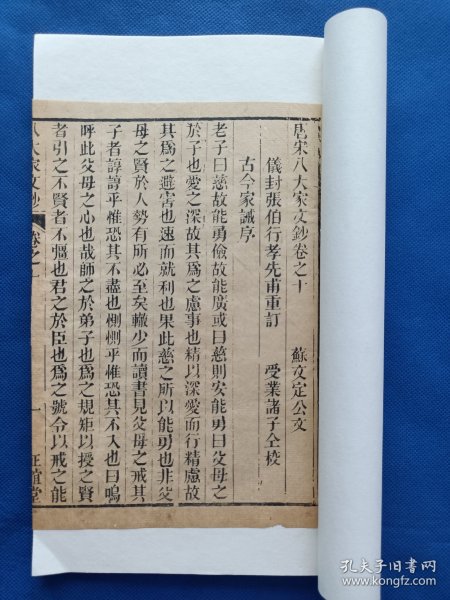 唐宋八大家文鈔卷之十
蘇文定公文
儀封張伯行孝先甫重訂
受業諸子仝校
古今家誡序
老子曰慈故能勇儉故能廣或曰慈則安能勇曰父母之
於子也愛之深故其爲之慮事也精以深愛而行精慮故
其爲之避害也速而就利也果此慈之所以能勇也非父
母之賢於人勢有所必至矣轍少而讀書見父母之戒其
子者諄諄乎惟恐其不盡也惻惻乎惟恐其不入也曰嗚
呼此父母之心也哉師之於弟子也爲之規矩以授之賢
者引之不賢者不彊也君之於臣也爲之號令以戒之能
八大家文鈔
卷之十
一
正誼堂
孔夫子旧书网
www.kongfz.com